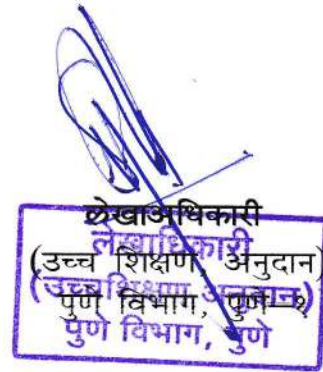 लेखाअधिकारी
(उच्च शिक्षण, अनुदान)
पुणे विभाग, पुणे—१
लेखाधिकारी
(उच्चशिक्षण अनुदान)
पुणे विभाग, पुणे